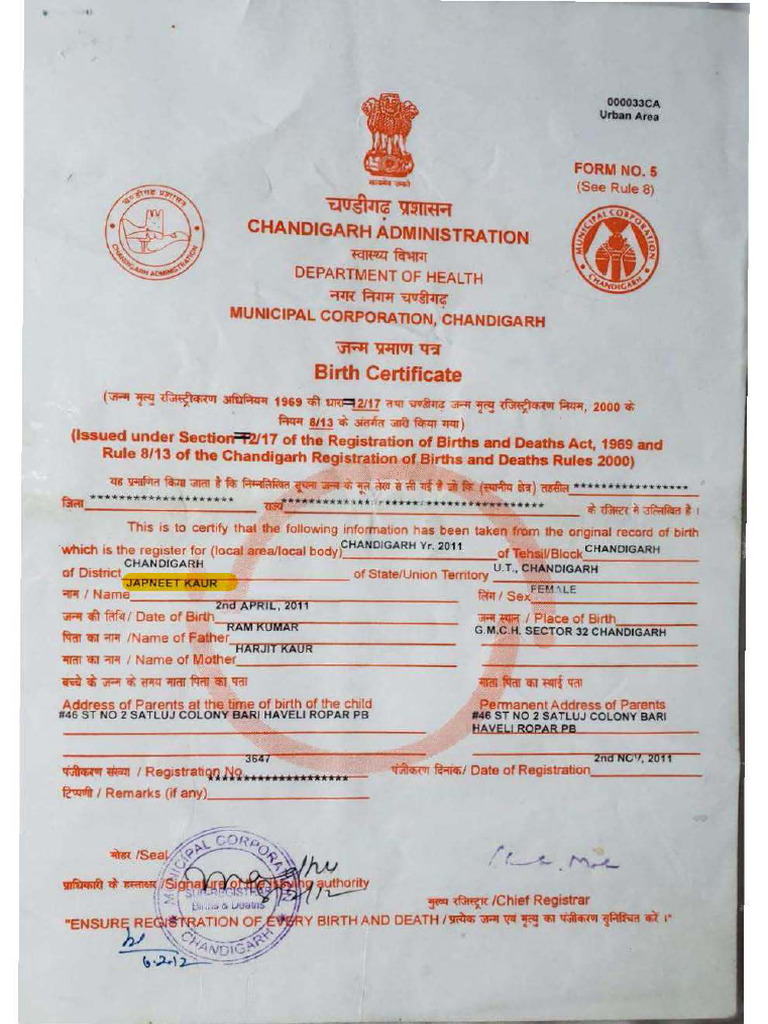 000033CA
Urban Area
FORM NO. 5
(See Rule 8)
चण्डीगढ़ प्रशासन
CHANDIGARH ADMINISTRATION
MUNICIPAL CORPORATION
CHANDIGARH
चण्डीगढ़ प्रशासन
CHANDIGARH ADMINISTRATION
स्वास्थ्य विभाग
DEPARTMENT OF HEALTH
नगर निगम चण्डीगढ़
MUNICIPAL CORPORATION, CHANDIGARH
जन्म प्रमाण पत्र
Birth Certificate
(जन्म मृत्यु रजिस्ट्रीकरण अधिनियम 1969 की धारा 12/17 तथा चण्डीगढ़ जन्म मृत्यु रजिस्ट्रीकरण नियम, 2000 के
नियम 8/13 के अंतर्गत जारी किया गया)
(Issued under Section 12/17 of the Registration of Births and Deaths Act, 1969 and
Rule 8/13 of the Chandigarh Registration of Births and Deaths Rules 2000)
यह प्रमाणित किया जाता है कि निम्नलिखित सूचना जन्म के मूल लेख से ली गई है जो कि (स्थानीय क्षेत्र) तहसील ******************
जिला ********************* राज्य ************************************** के रजिस्टर मे उल्लिखित है ।
This is to certify that the following information has been taken from the original record of birth
which is the register for (local area/local body) CHANDIGARH Yr. 2011 of Tehsil/Block CHANDIGARH
of District CHANDIGARH of State/Union Territory U.T., CHANDIGARH
नाम / Name JAPNEET KAUR लिंग / Sex FEMALE
जन्म की तिथि / Date of Birth 2nd APRIL, 2011 जन्म स्थान / Place of Birth G.M.C.H. SECTOR 32 CHANDIGARH
पिता का नाम /Name of Father RAM KUMAR
माता का नाम / Name of Mother HARJIT KAUR
बच्चे के जन्म के समय माता पिता का पता माता पिता का स्थाई पता
Address of Parents at the time of birth of the child Permanent Address of Parents
#46 ST NO 2 SATLUJ COLONY BARI HAVELI ROPAR PB #46 ST NO 2 SATLUJ COLONY BARI
HAVELI ROPAR PB
पंजीकरण संख्या / Registration No. 3647 पंजीकरण दिनांक/ Date of Registration 2nd NOV, 2011
टिप्पणी / Remarks (if any) *********************
मोहर /Seal
प्राधिकारी के हस्ताक्षर /Signature of the issuing authority
MUNICIPAL CORPORATION
SUB-REGISTRAR
Births & Deaths
CHANDIGARH
मुख्य रजिस्ट्रार /Chief Registrar
"ENSURE REGISTRATION OF EVERY BIRTH AND DEATH / प्रत्येक जन्म एवं मृत्यु का पंजीकरण सुनिश्चित करें ।"
6.2.12